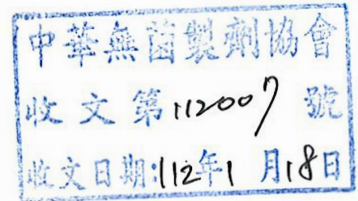 中華無菌製劑協會
收文第112007號
收文日期:112年1月18日